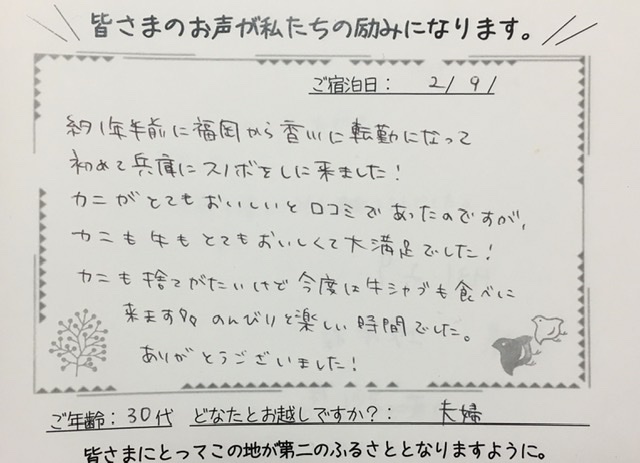 皆さまのお声が私たちの励みになります。
ご宿泊日: 2/9/
約1年半前に福岡から香川に転勤になって
初めて兵庫にスノボをしに来ました!
カニがとてもおいしいと口コミであったのですが、
カニも牛もとてもおいしくて大満足でした!
カニも捨てがたいけど今度は牛シャブも食べに
来ます♪♪ のんびりと楽しい時間でした。
ありがとうございました!
ご年齢: 30代 どなたとお越しですか?: 夫婦
皆さまにとってこの地が第二のふるさととなりますように。